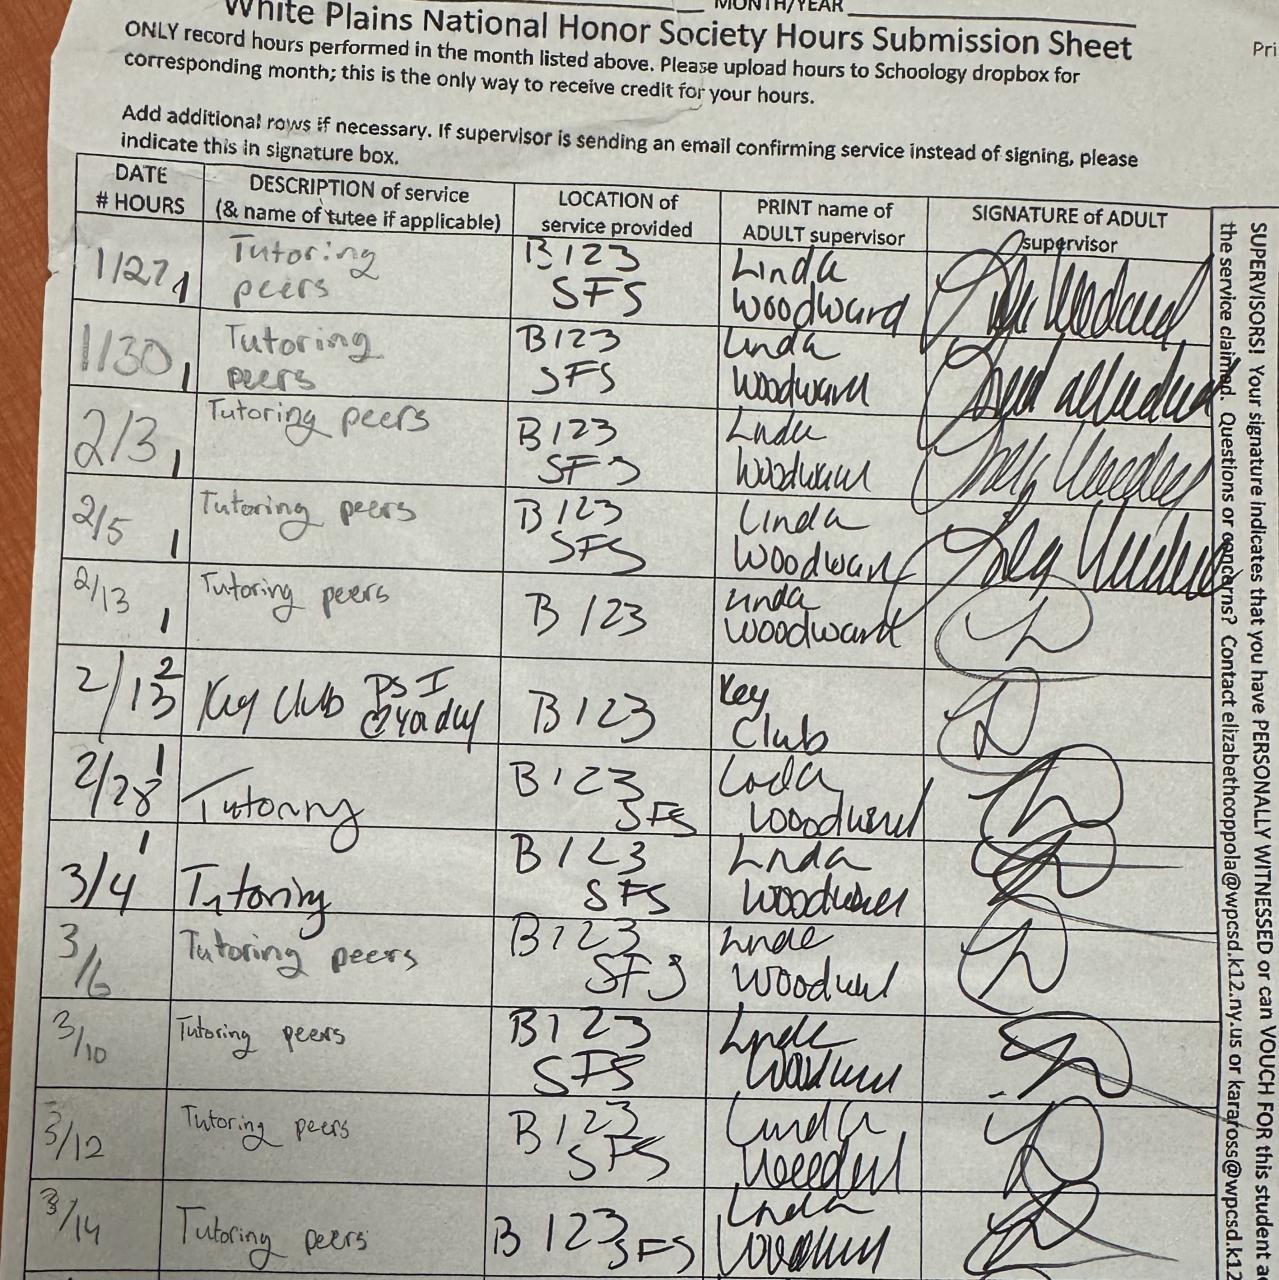 MONTH/YEAR
White Plains National Honor Society Hours Submission Sheet
Pri
ONLY record hours performed in the month listed above. Please upload hours to Schoology dropbox for
corresponding month; this is the only way to receive credit for your hours.
Add additional rows if necessary. If supervisor is sending an email confirming service instead of signing, please
indicate this in signature box.
DATE
# HOURS
DESCRIPTION of service
(& name of tutee if applicable)
LOCATION of
service provided
PRINT name of
ADULT supervisor
SIGNATURE of ADULT
supervisor
1/27 1
Tutoring
peers
B123
SFS
Linda
Woodward
1/30 1
Tutoring
peers
B123
SFS
Linda
Woodward
2/3 1
Tutoring peers
B123
SFS
Linda
Woodward
2/5 1
Tutoring peers
B123
SFS
Linda
Woodward
2/13 1
Tutoring peers
B 123
Linda
Woodward
2/13 2
Key Club PS I
B123
Key
Club
2/28 1
Tutoring
B123
SFS
Linda
Woodward
3/4 1
Tutoring
B123
SFS
Linda
Woodward
3/6
Tutoring peers
B123
SFS
Linda
Woodward
3/10
Tutoring peers
B123
SFS
Linda
Woodward
3/12
Tutoring peers
B123
SFS
Linda
Woodward
3/14
Tutoring peers
B 123 SFS
Linda
Woodward
SUPERVISORS! Your signature indicates that you have PERSONALLY WITNESSED or can VOUCH FOR this student a
the service claimed. Questions or concerns? Contact elizabethcoppola@wpcsd.k12.ny.us or karaross@wpcsd.k12